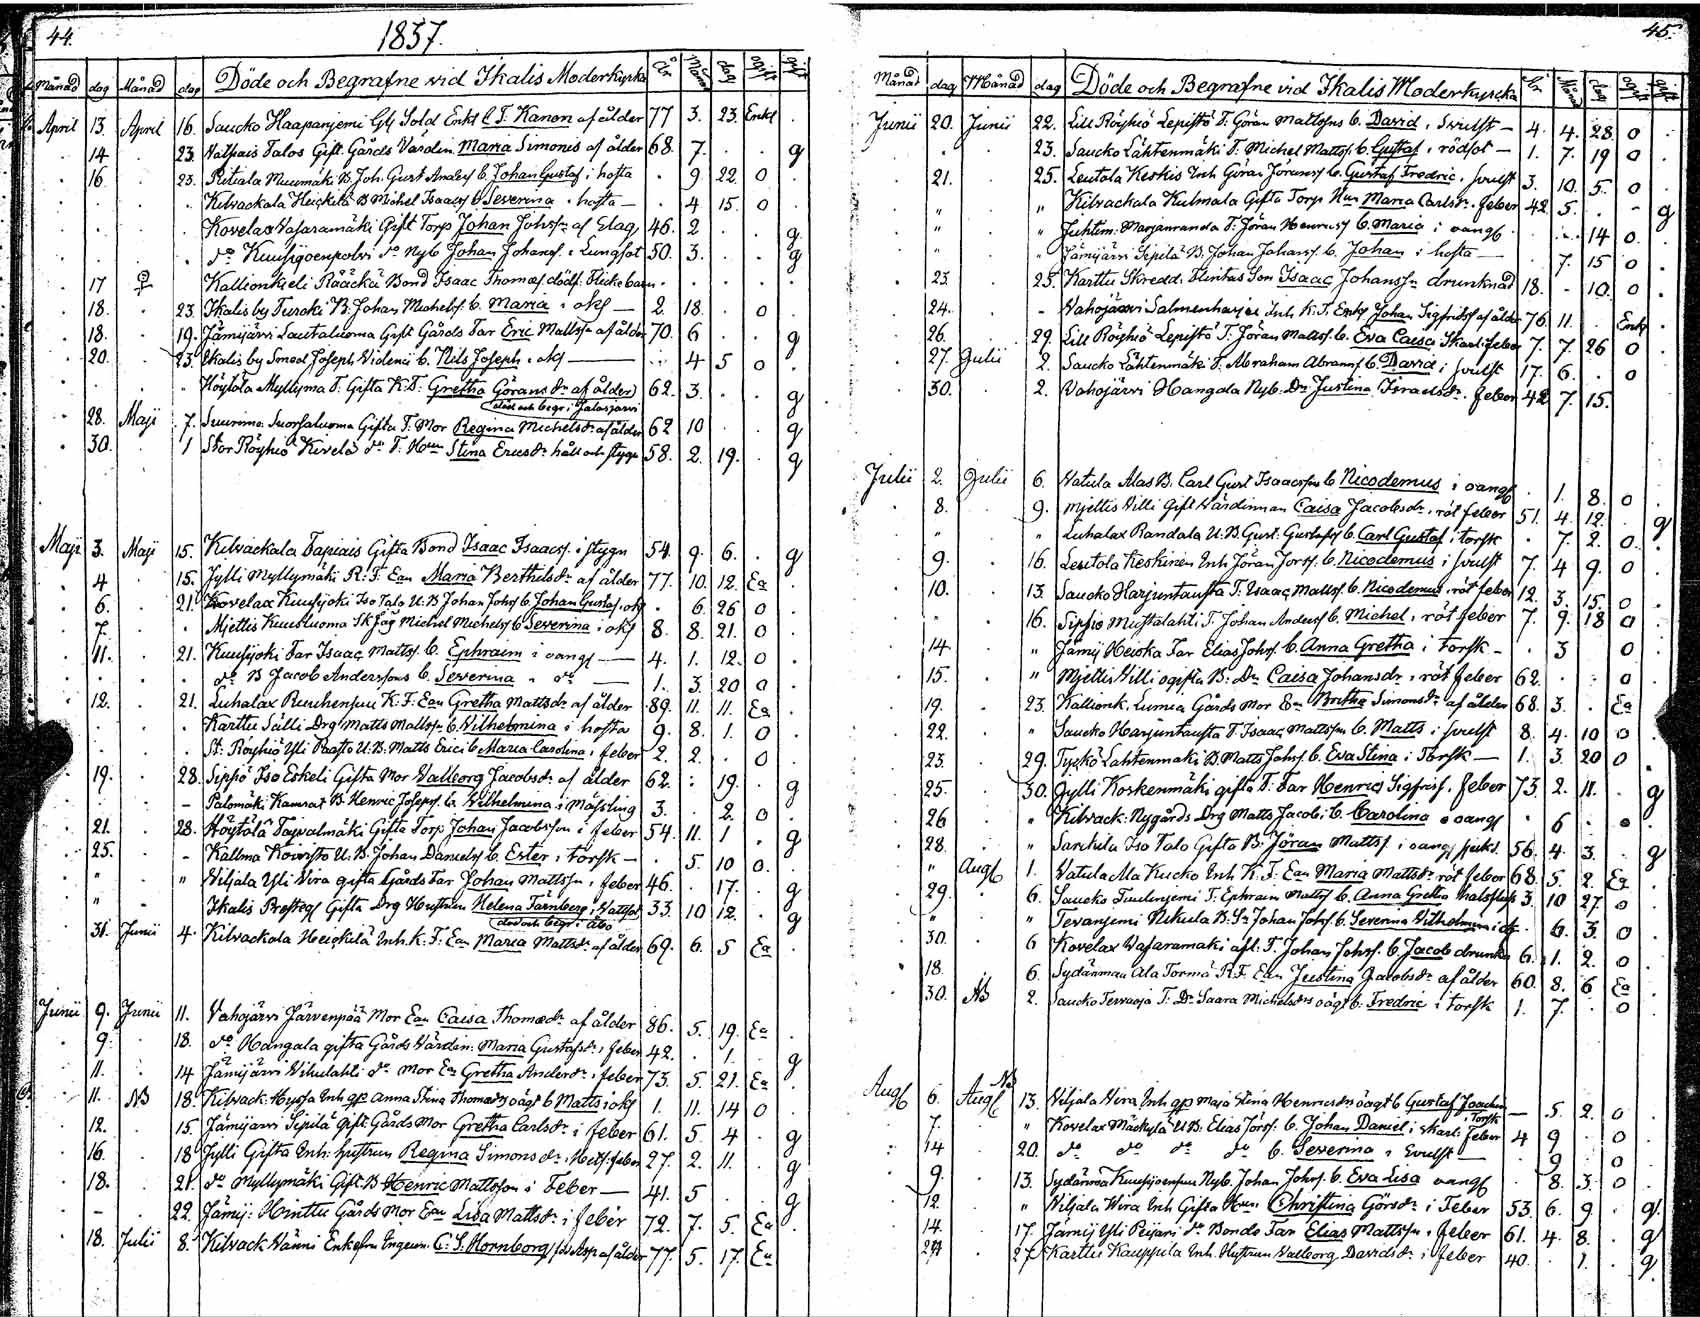 44.
1837.
Månad dag Månad dag Döde och Begrafne vid Ikalis Moderkyrka År Månad dag ogift gift
April 13. April 16. Saucko Haapanjemi Gl. Sold Enkl. C. F. Kanon af ålder 77 3. 23. Enkl
14 23. Natpais Talos Gift. Gårds Värdin. Maria Simonis af ålder 68. 7. g
16 23. Riitiala Muumäki B Joh. Gust Anders b. Johan Gustaf i hosta 9 22 0
Kilvackala Heickilä B Michel Isaacs b Severina i hosta 4 15. 0
Kovelax Vasaramäki Gift Torp Johan Johss. af Slag 46. 2 g
do Kuusijoenpolvi do Nyb Johan Johans. i Lungsot 50. 3. g
17 Kallionkieli Rääckä Bond Isaac Thomæ dödf. Flicke barn
18. 23. Ikalis by Turoki B. Johan Michels. b. Maria i oks 2 18. 0
18. 19. Jämijärvi Sautaluoma Gift Gårds Far Eric Mattss af ålder 70 6 g
20. 23. Ikalis by Smed Joseph Videnii b. Nils Joseph i oks 4 5 0
Höytölä Myllyma T. Gifta K. T. Gretha Görans dr af ålder 62. 3. g
död och begr. i Jalasjärvi
28. Maji 7. Suurima. Suorsaluoma Gifta T. Mor Regina Michelsdr. af ålder 62 10 g
30. 1 Stor Röyhiö Kivelä do T. Hun Stina Ericsdr håll och stygn 58. 2. 19. g
Maji 3. Maji 15. Kilvackala Papiais Gifta Bond Isaac Isaacs. i stygn 54. 9. 6. g
4 15. Jylli Myllymäki R. F. Ean Maria Berthilsdr af ålder 77. 10. 12. Ea
6. 21. Kovelax Kuusijoki Iso Talo U. B Johan Johss b Johan Gustaf. oks 6. 26 0
7. Mjettis Kuusluoma Sk. Jäg Michel Michelss b Severina i oks 8. 8. 21. 0
11. 21. Kuusijoki Far Isaac Mattss. b. Ephraim i oangs 4. 1. 12. 0
do B Jacob Anderssons b. Severina i do 1. 3. 20 0
12. 21. Luhalax Ruuhensuu K. F. Ean Gretha Mattsdr af ålder 89. 11. 11. Ea
Karttu Sälli Drg Matts Mattss b. Vilhelmina i hosta 9. 8. 1. 0
St. Röyhiö Yli Paasto U. B. Matts Erici b Maria Carolina i feber 2 2. 0
19. 28. Sippo Iso Eskeli Gifta Mor Valleorg Jacobsdr af ålder 62. 19. g
Palomäki Kamrat B Henric Josephs. b. Vilhelmina i Mässling 3. 2. 0
21. 28. Höytölä Tajvalmäki Gifta Torp Johan Jacobsson i feber 54. 11. 1. g
25. Kallma Koivisto U. B. Johan Daniels b. Ester i Torsk 5 10 0
Viljala Yli Vira gifta Gårds Far Johan Mattss i feber 46. 17. g
Ikalis Prestegs Gifta Drg Hustrun Helena Färnberg i Vattsot 33. 10 12. g
död och begr. i Åbo
31. Junii 4. Kilvackala Heickilä Inh. K. F. Ean Maria Mattsdr af ålder 69. 6. 5 Ea
Junii 9. Junii 11. Vahojärvi Järvenpää Mor Ean Caisa Thomædr af ålder 86. 5. 19. Ea
9. 18. do Hangala gifta Gårds Värdin. Maria Gustafsdr i feber 42. 1. g
11. 14 Jämijärvi Vihulahti do Mor Ea Gretha Andersdr i feber 73. 5. 21. Ea
11. NB 18. Kilvack. Hyssä Inh. gp Anna Stina Thomædrs oägt b Matts i oks 1. 11. 14 0
12. 15. Jämijärvi Sipilä Gift Gårds Mor Gretha Carlsdr i feber 61. 5. 4 g
16. 18 Jylli Gifta Inh. hustrun Regina Simonsdr i Nerf. feber 27. 2. 11. g
18. 21. do Myllymäki Gift B Henric Mattsson i Feber 41. 5 g
22. Jämij: Hinttu Gårds Mor Ean Lisa Mattsdr i feber 72. 7. 5. Ea
18. Julii 8. Kilvack Vänni Enkefru Ingeun. C. S. Hornborg af ålder 77. 5. 17. Ea
45.
Månad dag Månad dag Döde och Begrafne vid Ikalis Moderkyrcka År Månad dag ogift gift
Junii 20. Junii 22. Lill Röyhiö Lepistö T. Göran Mattsons b. David i Svullst 4. 4. 28. 0
23. Saucko Lähtenmäki T. Michel Mattss. b. Gustaf i rödsot 1. 7. 19 0
21. 25. Leutola Keskis Inh Göran Göranss b. Gustaf Fredric i svulst 3. 10. 5. 0
" Kilvackala Kulmala Gifta Torp Hun Maria Carlsdr. feber 42 5. g
" Juhtim: Marjanranda T. Jöran Henricss b. Maria i oangs 14 0.
" Jämijärvi Sipilä B. Johan Johans. b. Johan i hosta 7. 15 0
23. 25. Karttu Skredd. Flinkas Son Isaac Johansson drunknad 18. 10. 0
24. Vahojärvi Salmenharju Inh K. F. Enkl Johan Sigfridss af ålder 76. 11. Enkl
26. 29. Lill Röyhiö Lepistö T. Jöran Mattss. b. Eva Caisa Skarl. feber 7. 7. 26 0
27. Julii 2. Saucko Lähtenmäki T. Abraham Abramss b. David i svulst 17. 6. 0
30. 2. Vahojärvi Hangala Nyb. Dr. Justina Israelsdr. feber 42 7. 15.
Julii 2. Julii 6. Vatula Alas B. Carl Gust Isaacsons b Nicodemus i oangs 1. 8. 0
8. 9. Mjettis Villi Gift Värdinnan Caisa Jacobsdr i röt feber 51. 4. 12. g
" Luhalax Randala U. B Gust. Gustafss b. Carl Gustaf i torsk 7. 2. 0
9. 16. Leutola Keskinen Inh Jöran Jorss. b. Nicodemus i svulst 7. 4 9. 0
10. 13. Saucko Harjuntausta T. Isaac Mattss. b. Nicodemus i röt feber 12. 3. 15. 0
16. Sippio Mustalahti T. Johan Anderss b. Michel i röt feber 7. 9. 18 0
14. " Jämij Heioka Far Elias Johss. b. Anna Gretha i torsk 3 0
15. " Mjettis Villi ogifta B. Dr. Caisa Johansdr i röt feber 62. 0
19. 23. Kallionk. Lumia Gårds Mor Ean Britha Simonsdr af ålder 68. 3. Ea
22. " Saucko Harjuntausta T. Isaac Mattsson b. Matts i svulst 8. 4. 10 0
23. 29. Tyrkö Lahtenmäki B. Matts Johss. b. Eva Stina i Torsk 1. 3. 20 0
25. 30. Jylli Koskenmäki gifta T. Far Henric Sigfrss. feber 73. 2. 11. g
26. " Kilvack: Nygårds Drg Matts Jacobi b. Carolina i oangs 6
28. " Sarckila Iso Talo Gifta B. Jöran Mattss. i oangs siukd. 56. 4. 3. g
" Augs 1. Vatula Ala Kucko Inh K. F. Ean Maria Mattsdr röt feber 68. 5. 2. Ea
29. 6. Saucko Tuulenjemi T. Ephraim Mattss b. Anna Gretha halsfluss 3. 10 27. 0
" " Tevanjemi Nikula B. Sn Johan Johss. b. Severina Vilhelmina i oks 6. 3. 0
30. 6 Kovelax Vasaramäki afl. T. Johan Johss. b Jacob drunkn. 6. 1. 2. 0
18. 6. Sydänmaa Ala Tormä R. F. Ean Justina Jacobsdr af ålder 60. 8. 6 Ea
30. NB 2. Saucko Tervaoja T. Dr Saara Michelsdrs oägt b. Fredric i torsk 1. 7. 0
NB
Augs 6. Augs 13. Viljala Vira Inh gp Maja Stina Henricsdrs oägt b Gustaf Joachim Torsk 5. 2. 0
7. " Kovelax Mäckylä U. B. Elias Jörss. b. Johan Daniel i skarl. feber 4 9 0
14 20. do do do do b. Severina i Svulst 9 0
9. 13. Sydänmaa Kuusijoensuu Nyb. Johan Johss. b. Eva Lisa oangs 8. 3. 0
12. " Viljala Wira Inh Gifta Hun Christina Görsdr i Feber 53. 6. 9 g
14. 17. Jämij Yli Peijari do Bonde Far Elias Mattsson i feber 61. 4. 8. g
24 27 Karttu Kauppula Inh. Hustrun Valleorg Davidsdr i feber 40. 1. g